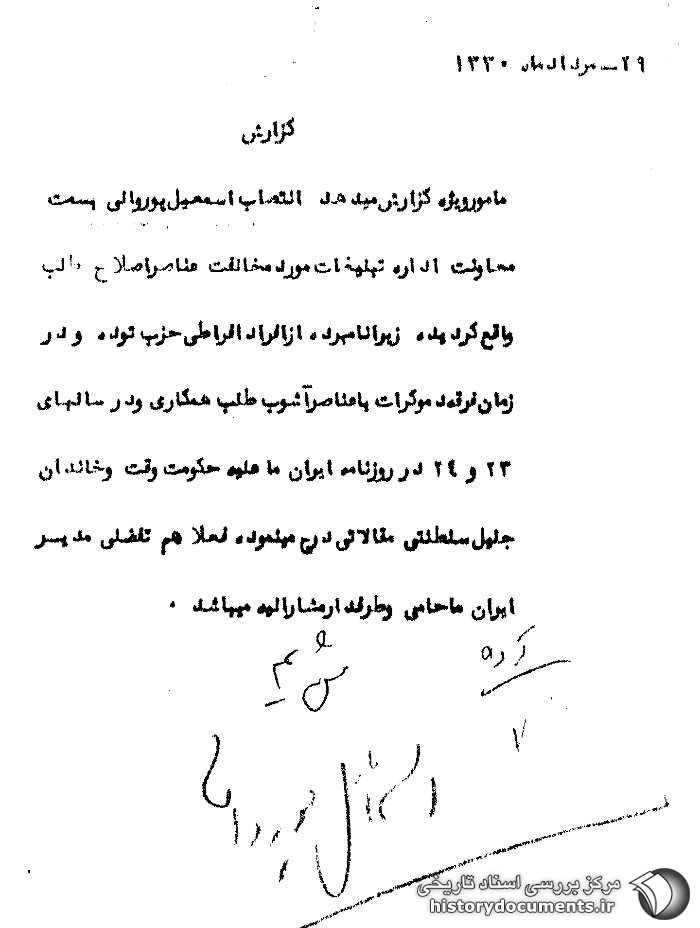 ۲۹ ــ مرداد ماه ۱۳۳۰
گزارش
مامور ویژه گزارش میدهد انتصاب اسمعیل پوروالی بسمت
معاونت اداره تبلیغات مورد مخالفت عناصر اصلاح طلب
واقع گردیده زیرا نامبرده از افراد افراطی حزب توده و در
زمان فرقه دموکرات با عناصر آشوب طلب همکاری و در سالهای
۲۳ و ۲٤ در روزنامه ایران ما علیه حکومت وقت و خاندان
جلیل سلطنتی مقالاتی درج مینموده فعلا هم تفضلی مدیر
ایران ما حامی وطرفدار مشارالیه میباشد .
اسماعیل پوروالی
مرکز بررسی اسناد تاریخی
historydocuments.ir